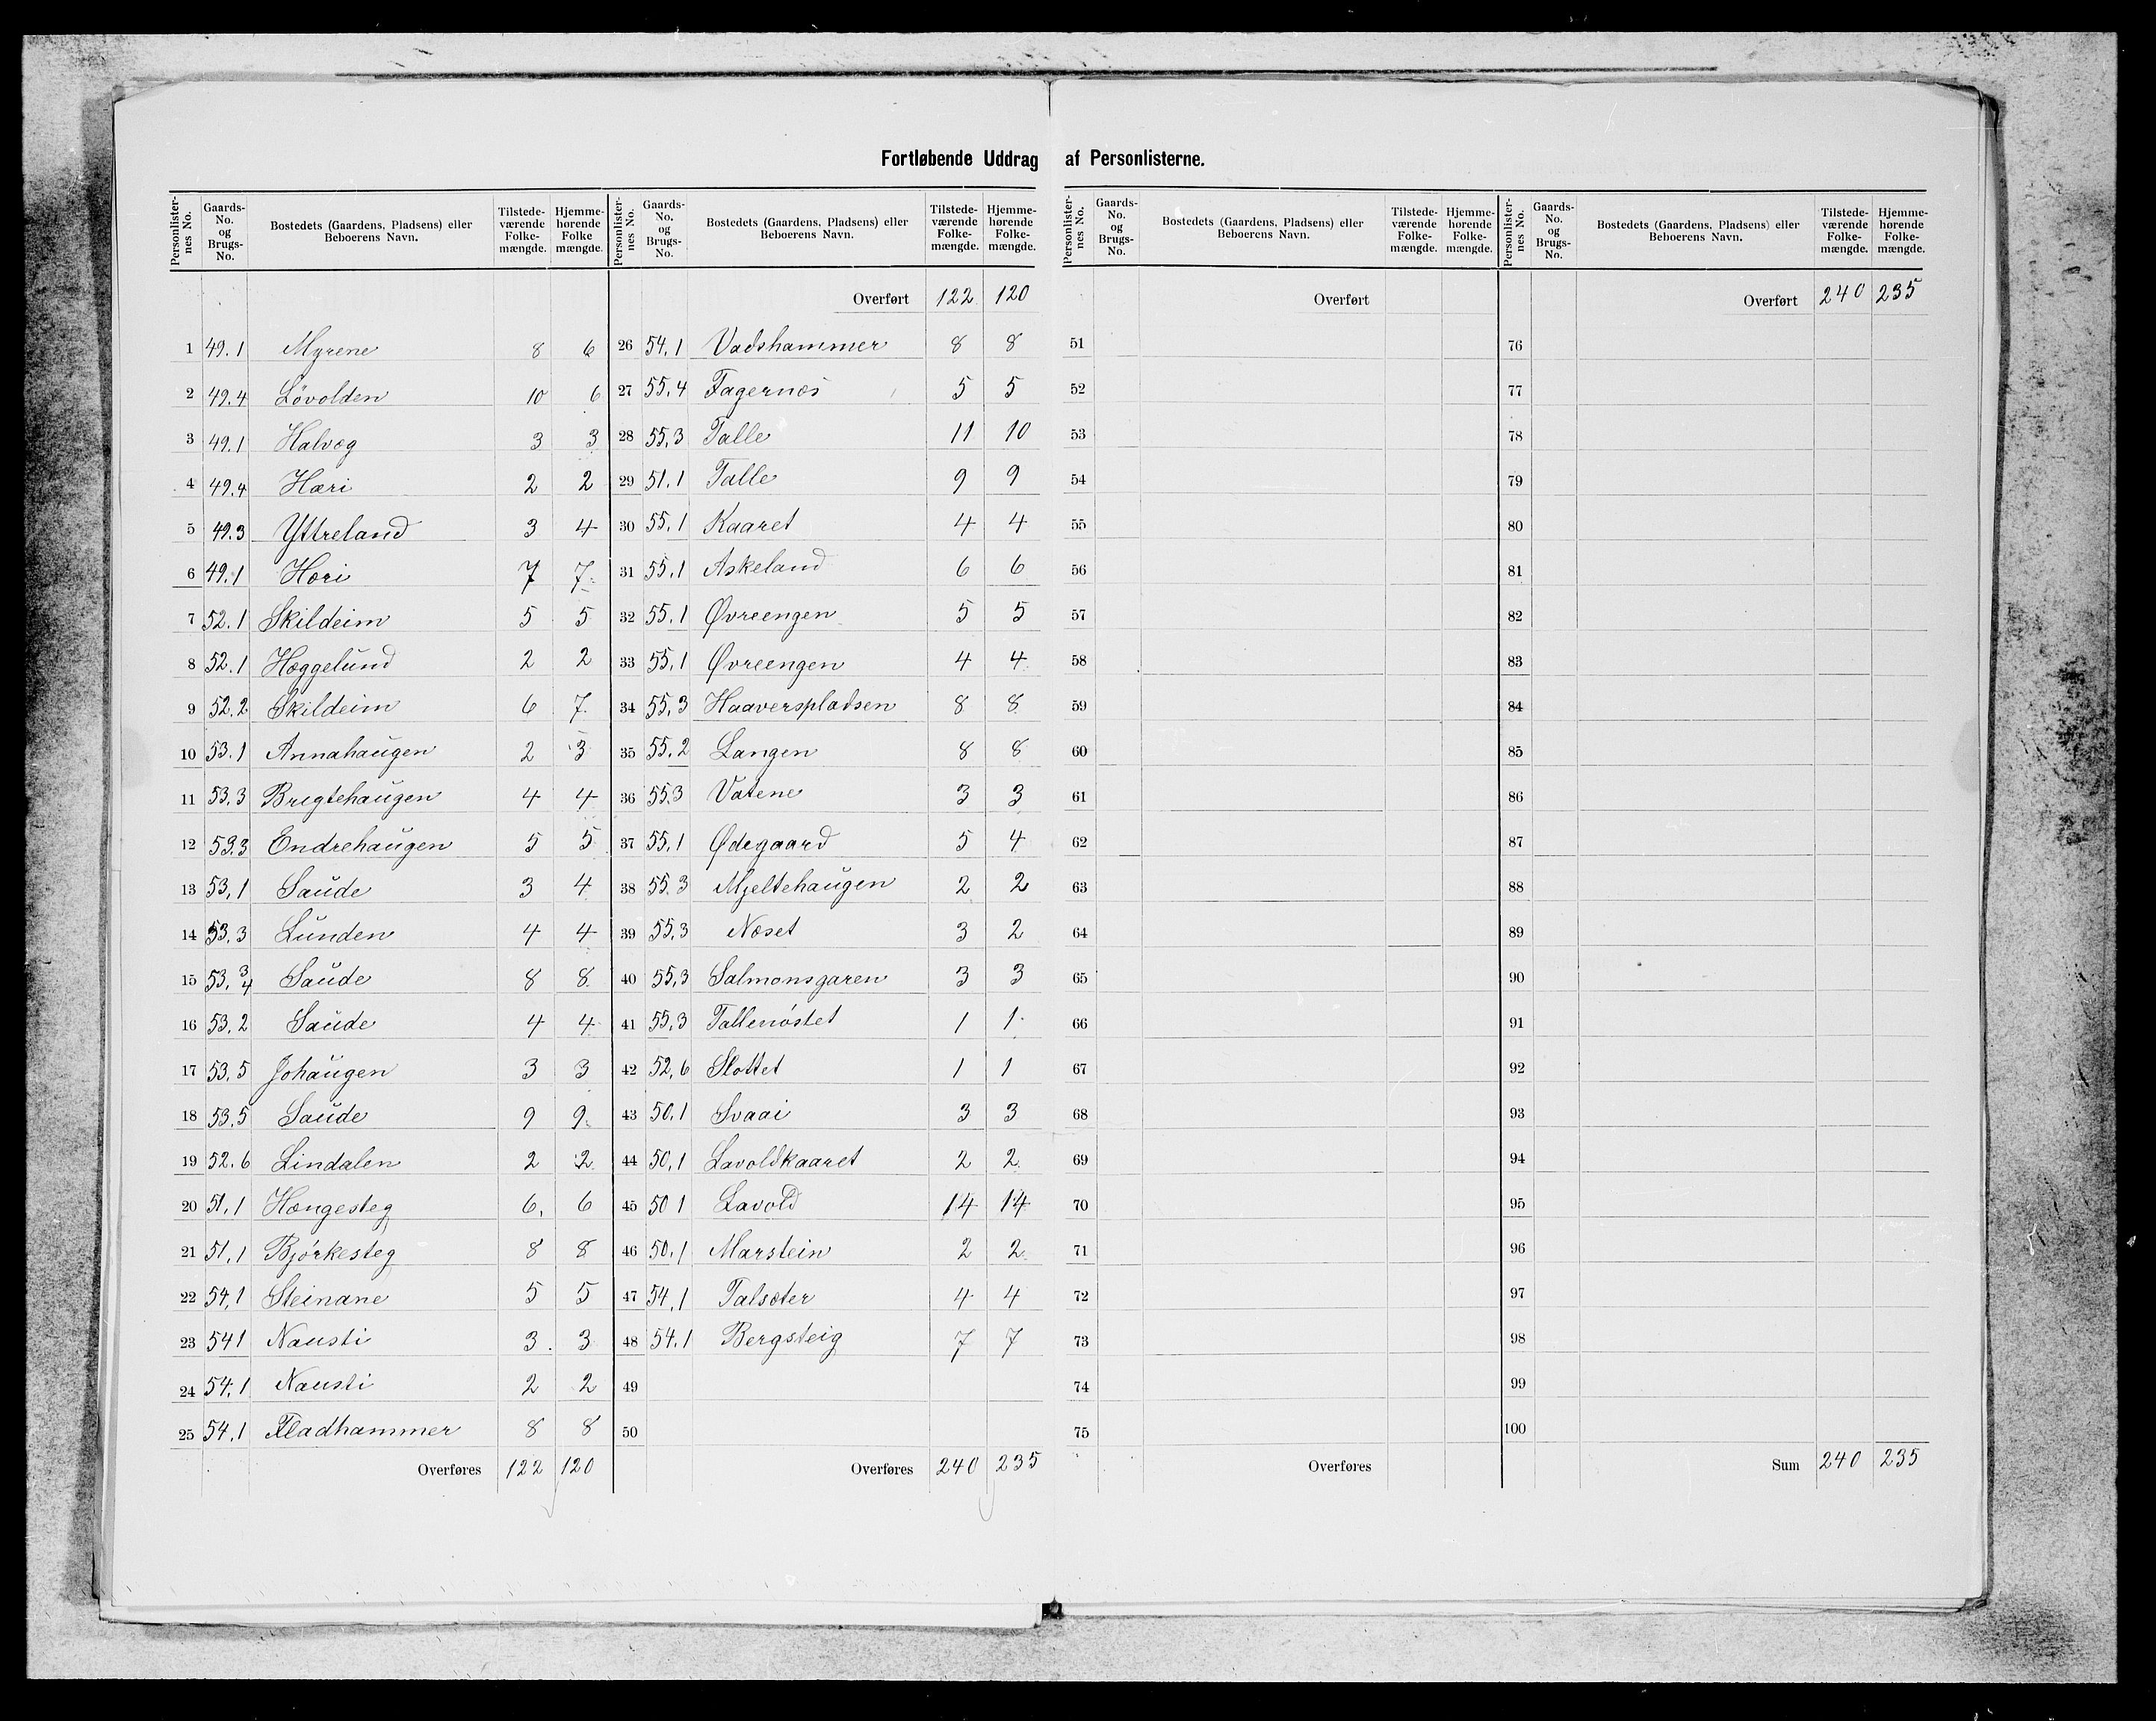 Fortløbende Uddrag af Personlisterne.
Personlisternes No. | Gaards-No. og Brugs-No. | Bostedets (Gaardens, Pladsens) eller Beboerens Navn. | Tilstedeværende Folkemængde. | Hjemmehørende Folkemængde.
1 49.1 Myrene 8 6
2 49.4 Løvolden 10 6
3 49.1 Halvæg 3 3
4 49.4 Hæri 2 2
5 49.3 Yttreland 3 4
6 49.1 Hæri 7 7
7 52.1 Skildeim 5 5
8 52.1 Hæggelund 2 2
9 52.2 Skildeim 6 7
10 53.1 Annahaugen 2 3
11 53.3 Bregtehaugen 4 4
12 53.3 Endrehaugen 5 5
13 53.1 Saude 3 4
14 53.3 Lunden 4 4
15 53.3/4 Saude 8 8
16 53.2 Saude 4 4
17 53.5 Johaugen 3 3
18 53.5 Saude 9 9
19 52.6 Lindalen 2 2
20 51.1 Hængesteg 6 6
21 51.1 Bjørkesteg 8 8
22 54.1 Steinane 5 5
23 54 1 Nausti 3 3
24 54.1 Nausti 2 2
25 54.1 Fladhammer 8 8
Overføres 122 120
Personlisternes No. | Gaards-No. og Brugs-No. | Bostedets (Gaardens, Pladsens) eller Beboerens Navn. | Tilstedeværende Folkemængde. | Hjemmehørende Folkemængde.
Overført 122 120
26 54.1 Vadshammer 8 8
27 55.4 Fagernæs 5 5
28 55.3 Talle 11 10
29 51.1 Talle 9 9
30 55.1 Kaaret 4 4
31 55.1 Askeland 6 6
32 55.1 Øvreengen 5 5
33 55.1 Øvreengen 4 4
34 55.3 Haaverspladsen 8 8
35 55.2 Langen 8 8
36 55.3 Vatene 3 3
37 55.1 Ødegaard 5 4
38 55.3 Mjeltehaugen 2 2
39 55.3 Næset 3 2
40 55.3 Salmonsgaren 3 3
41 55.3 Tallenøstet 1 1
42 52.6 Slottet 1 1
43 50.1 Svaai 3 3
44 50.1 Lavoldkaaret 2 2
45 50 1 Lavold 14 14
46 50.1 Marstein 2 2
47 54.1 Talsæter 4 4
48 54.1 Bergsteig 7 7
49
50
Overføres 240 235
Personlisternes No. | Gaards-No. og Brugs-No. | Bostedets (Gaardens, Pladsens) eller Beboerens Navn. | Tilstedeværende Folkemængde. | Hjemmehørende Folkemængde.
Overført
51
52
53
54
55
56
57
58
59
60
61
62
63
64
65
66
67
68
69
70
71
72
73
74
75
Overføres
Personlisternes No. | Gaards-No. og Brugs-No. | Bostedets (Gaardens, Pladsens) eller Beboerens Navn. | Tilstedeværende Folkemængde. | Hjemmehørende Folkemængde.
Overført 240 235
76
77
78
79
80
81
82
83
84
85
86
87
88
89
90
91
92
93
94
95
96
97
98
99
100
Sum 240 235